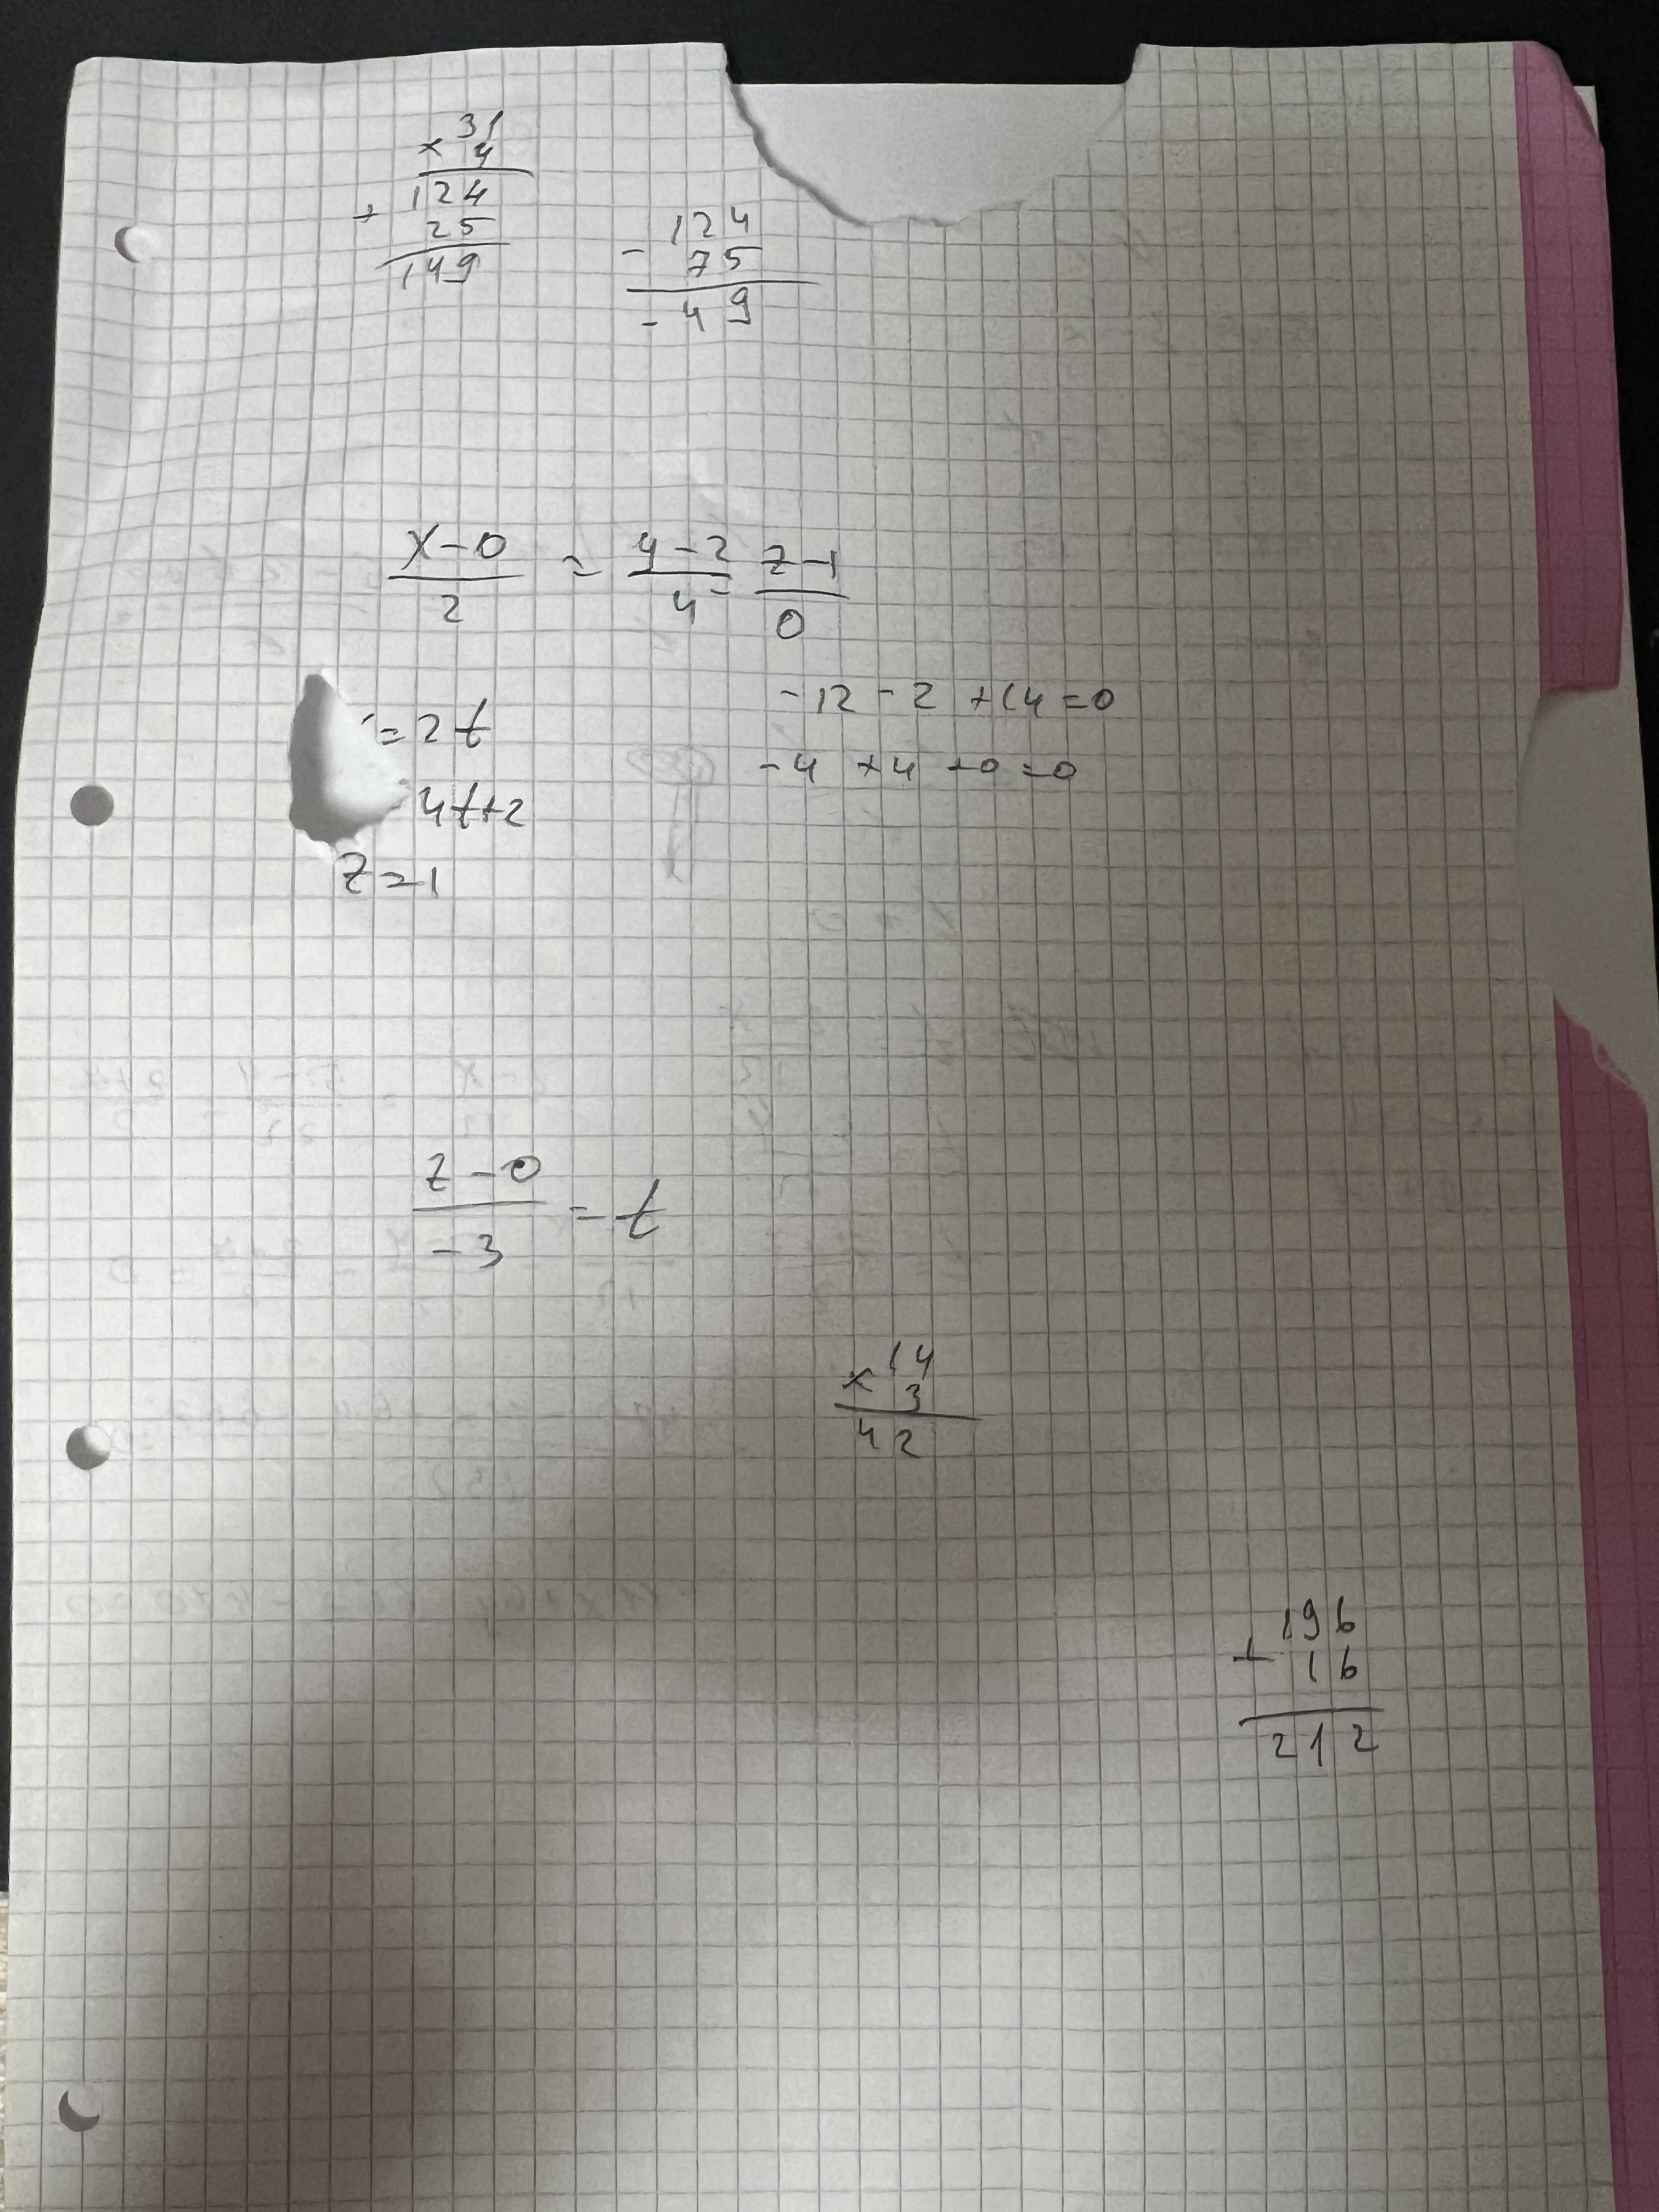 31
× 4
124
+ 25
149
- 124
75
- 49
x-0 / 2 = y-2 / 4 = z-1 / 0
= 2t
4t+2
z=1
-12 -2 +14=0
-4 +4 +0=0
z-0 / -3 = t
× 14
3
42
196
+ 16
212